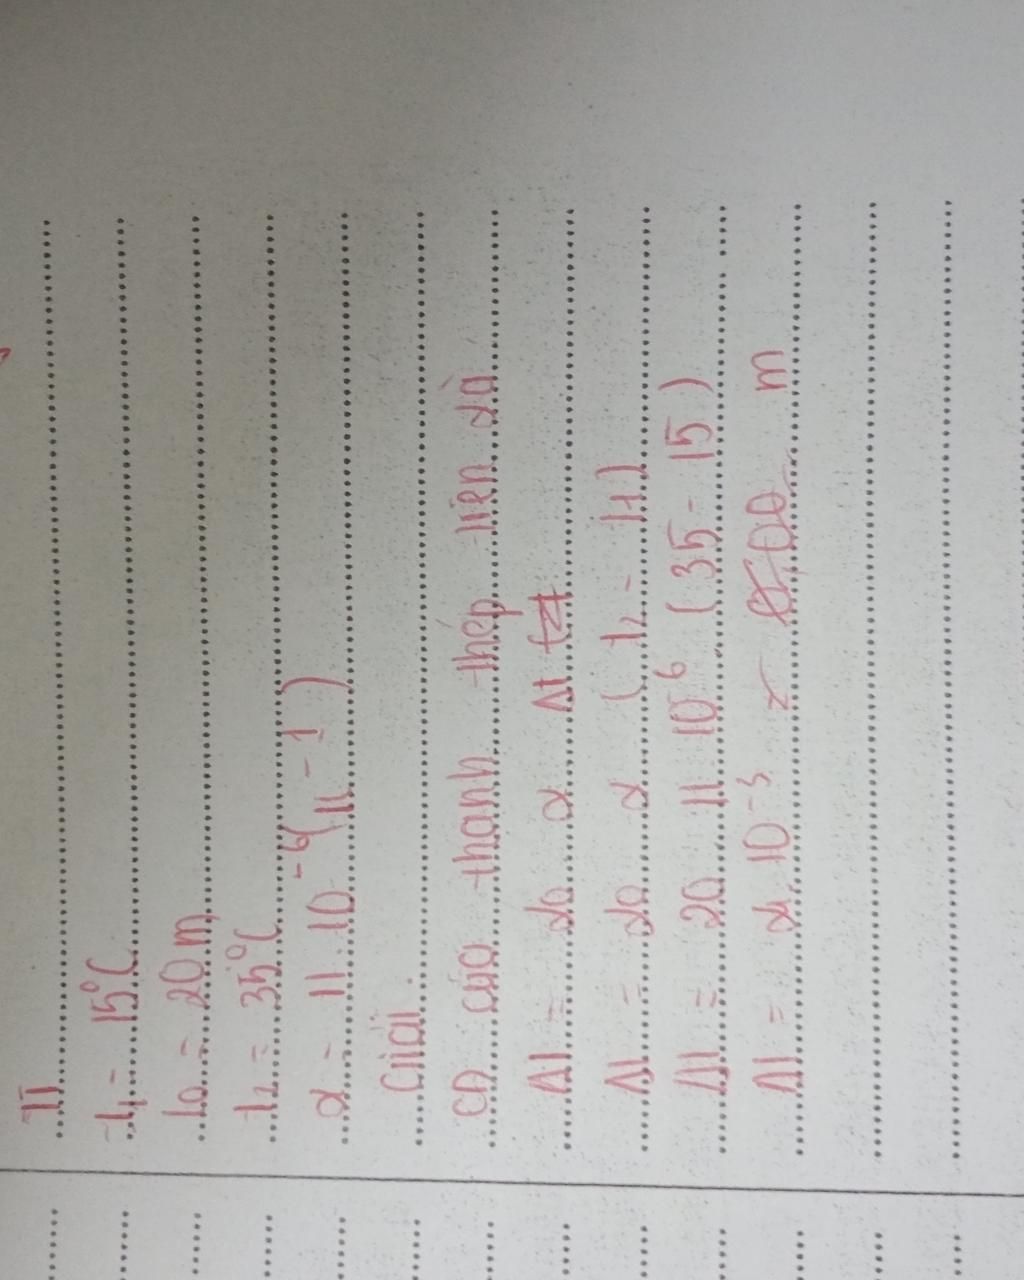 TT
t₁ = 15°C
l₀ = 20 m
t₂ = 35°C
α = 11.10⁻⁶ (k - 1)
Giải
CD của thanh thép trên là
Δl = l₀ α Δt
Δl = l₀ α (t₂ - t₁)
Δl = 20 11 10⁻⁶ (35 - 15)
Δl = 10⁻³ m